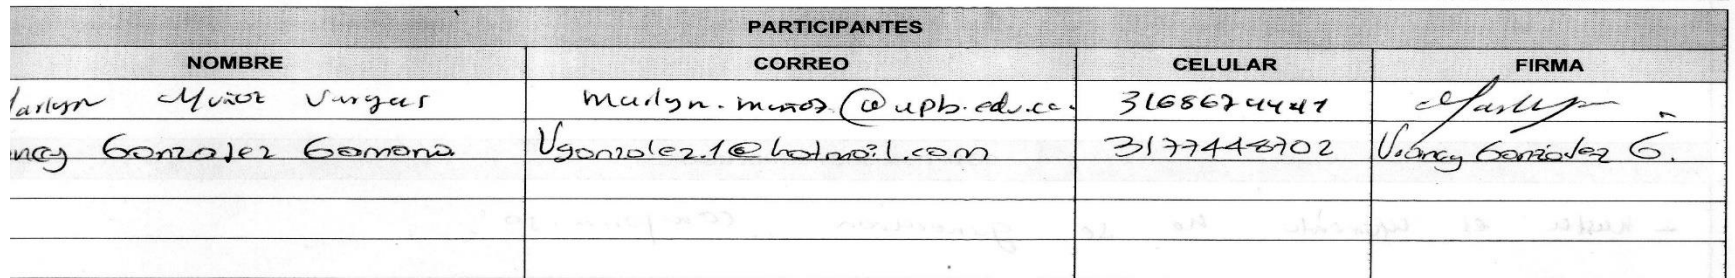 PARTICIPANTES
NOMBRE CORREO CELULAR FIRMA
arlyn Muñoz Vargas marlyn.munoz@upb.edu.co 3168674441 Marlyn
ncy Gonzalez Gamona Vgonzalez.1@hotmail.com 3177448702 Viancy Gonzalez G.